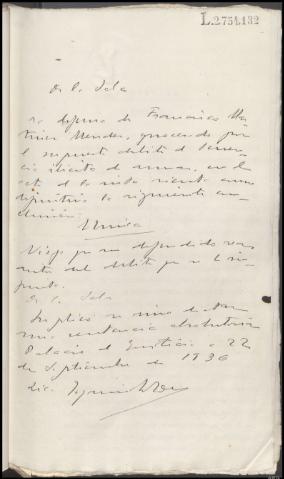 L.2754,132
A la Sala
La defensa de Francisco Mar
tínez Mendez, procesado por
el supuesto delito de tenen-
cia ilícita de armas, en el
acto de la vista sienta como
definitiva la siguiente con-
clusión:
Unica
Niego que mi defendido sea
autor del delito que se le im-
puta.
A la Sala
Suplico se sirva dictar
una sentencia absolutoria
Palacio de Justicia a 22
de Septiembre de 1936
Lic.